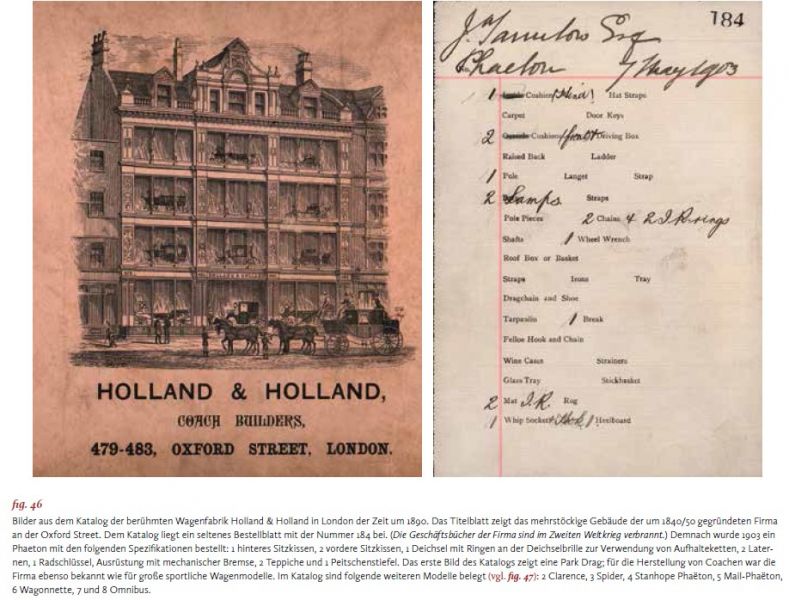 HOLLAND & HOLLAND,
COACH BUILDERS,
479-483, OXFORD STREET, LONDON.
184
Esq
Phaeton 7 May 1903
1 Cushion (Hind) Hat Straps
Carpet Door Keys
2 Cushions (front) Driving Box
Raised Back Ladder
1 Pole Langet Strap
2 Lamps Straps
Pole Pieces 2 Chains & 2 I.R. rings
Shafts 1 Wheel Wrench
Roof Box or Basket
Straps Irons Tray
Dragchain and Shoe
Tarpaulin 1 Break
Felloe Hook and Chain
Wine Cases Strainers
Glass Tray Stickbasket
2 Mat I.R. Rug
1 Whip Socket 1 Heelboard
fig. 46
Bilder aus dem Katalog der berühmten Wagenfabrik Holland & Holland in London der Zeit um 1890. Das Titelblatt zeigt das mehrstöckige Gebäude der um 1840/50 gegründeten Firma
an der Oxford Street. Dem Katalog liegt ein seltenes Bestellblatt mit der Nummer 184 bei. (Die Geschäftsbücher der Firma sind im Zweiten Weltkrieg verbrannt.) Demnach wurde 1903 ein
Phaeton mit den folgenden Spezifikationen bestellt: 1 hinteres Sitzkissen, 2 vordere Sitzkissen, 1 Deichsel mit Ringen an der Deichselbrille zur Verwendung von Aufhalteketten, 2 Later-
nen, 1 Radschlüssel, Ausrüstung mit mechanischer Bremse, 2 Teppiche und 1 Peitschenstiefel. Das erste Bild des Katalogs zeigt eine Park Drag; für die Herstellung von Coachen war die
Firma ebenso bekannt wie für große sportliche Wagenmodelle. Im Katalog sind folgende weiteren Modelle belegt (vgl. fig. 47): 2 Clarence, 3 Spider, 4 Stanhope Phaëton, 5 Mail-Phaëton,
6 Wagonnette, 7 und 8 Omnibus.